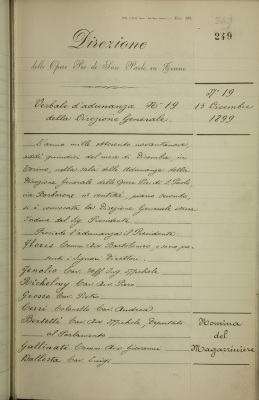 249
Direzione
delle Opere Pie di San Paolo in Torino
Nº 19
Verbale d'adunanza Nº 19
13 Dicembre
della Direzione Generale.
1899
L'anno mille ottocento novantanove,
addì quindici del mese di Dicembre, in
Torino, nella sala delle adunanze della
Direzione Generale delle Opere Pie di S. Paolo,
via
si è convocata la Direzione Generale
l'ordine del Sig. Presidente
Presiede l'adunanza il Presidente
Floris Comm. Avv. Bartolomeo e sono pre-
senti i Signori Direttori.
Genolio Cav. Uff. Ing. Michele
Richelmy Cav. Avv. Piero
Grosso Cav. Pietro
Cerri Colonnello Cav. Andrea
Bertetti Cav. Avv. Michele, Deputato
al Parlamento
Gallinati Comm. Avv. Giovanni
Ballesta Cav. Luigi
Nomina
del
Magazziniere